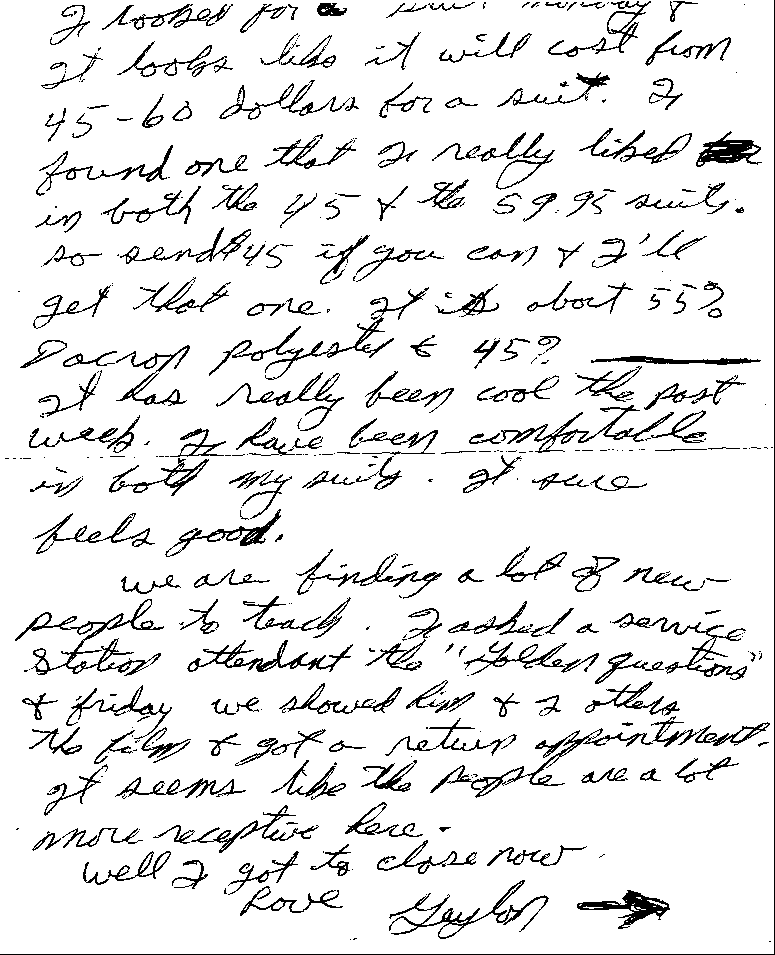 I looked for a suit monday &
It looks like it will cost from
45-60 dollars for a suit. I
found one that I really liked
in both the 45 & the 59.95 suits.
so send $45 if you can & I'll
get that one. It is about 55%
Dacron polyester & 45% ______
It has really been cool the past
week. I have been comfortable
in both my suits. It sure
feels good.
we are finding a lot of new
people to teach. I asked a service
station attendant the "Golden questions"
& friday we showed him & 2 others
the film & got a return appointment.
It seems like the people are a lot
more receptive here.
well I got to close now
Love Gaylon →